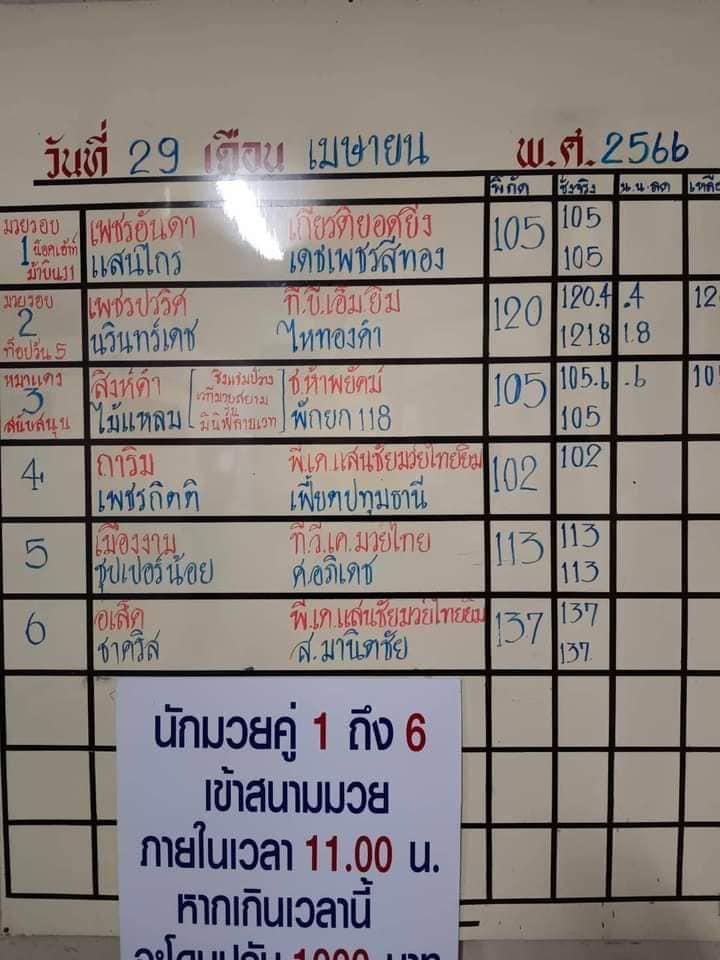 วันที่ 29 เดือน เมษายน พ.ศ. 2566
พิกัด ชั่งจริง น.น.ลด
มวยรอบ เพชรอันดา เกียรติยอดยิ่ง 105 105
1 น็อคเอ้าท์
ม้าบิน11 แสนไกร เดชเพชรสีทอง 105
มวยรอบ เพชรปวริศ ที.บี.เอ็ม.ยิม 120 120.4 .4
2
ท็อปวัน 5 นวินทร์เดช ไหทองคำ 121.8 1.8
หมาแดง สิงห์ดำ ช.ห้าพยัคฆ์ 105 105.6 .6
3
สนับสนุน ไม้แหลม พักยก 118 105
ชิงแชมป์ว่าง
เวทีมวยสยาม
รุ่น
มินิฟลายเวท
4 การิม พี.เค.แสนชัยมวยไทยยิม 102 102
เพชรกิตติ เฟี้ยตปทุมธานี
5 เมืองงาม ที.วี.เค.มวยไทย 113 113
ซุปเปอร์น้อย ศ.อภิเดช 113
6 อเล็ค พี.เค.แสนชัยมวยไทยยิม 137 137
ชาควิส ส.มานิตชัย 137
นักมวยคู่ 1 ถึง 6
เข้าสนามมวย
ภายในเวลา 11.00 น.
หากเกินเวลานี้
จะโดนปรับ 1000 บาท